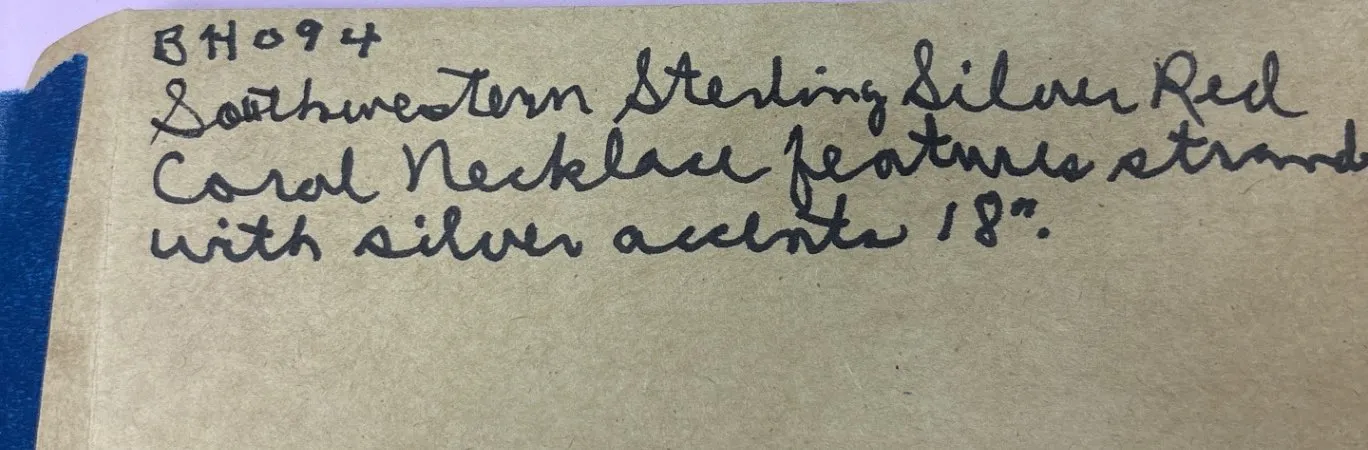 BH094
Southwestern Sterling Silver Red
Coral Necklace features strand
with silver accents 18".